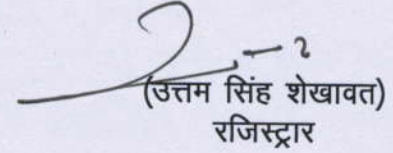 (उत्तम सिंह शेखावत)
रजिस्ट्रार